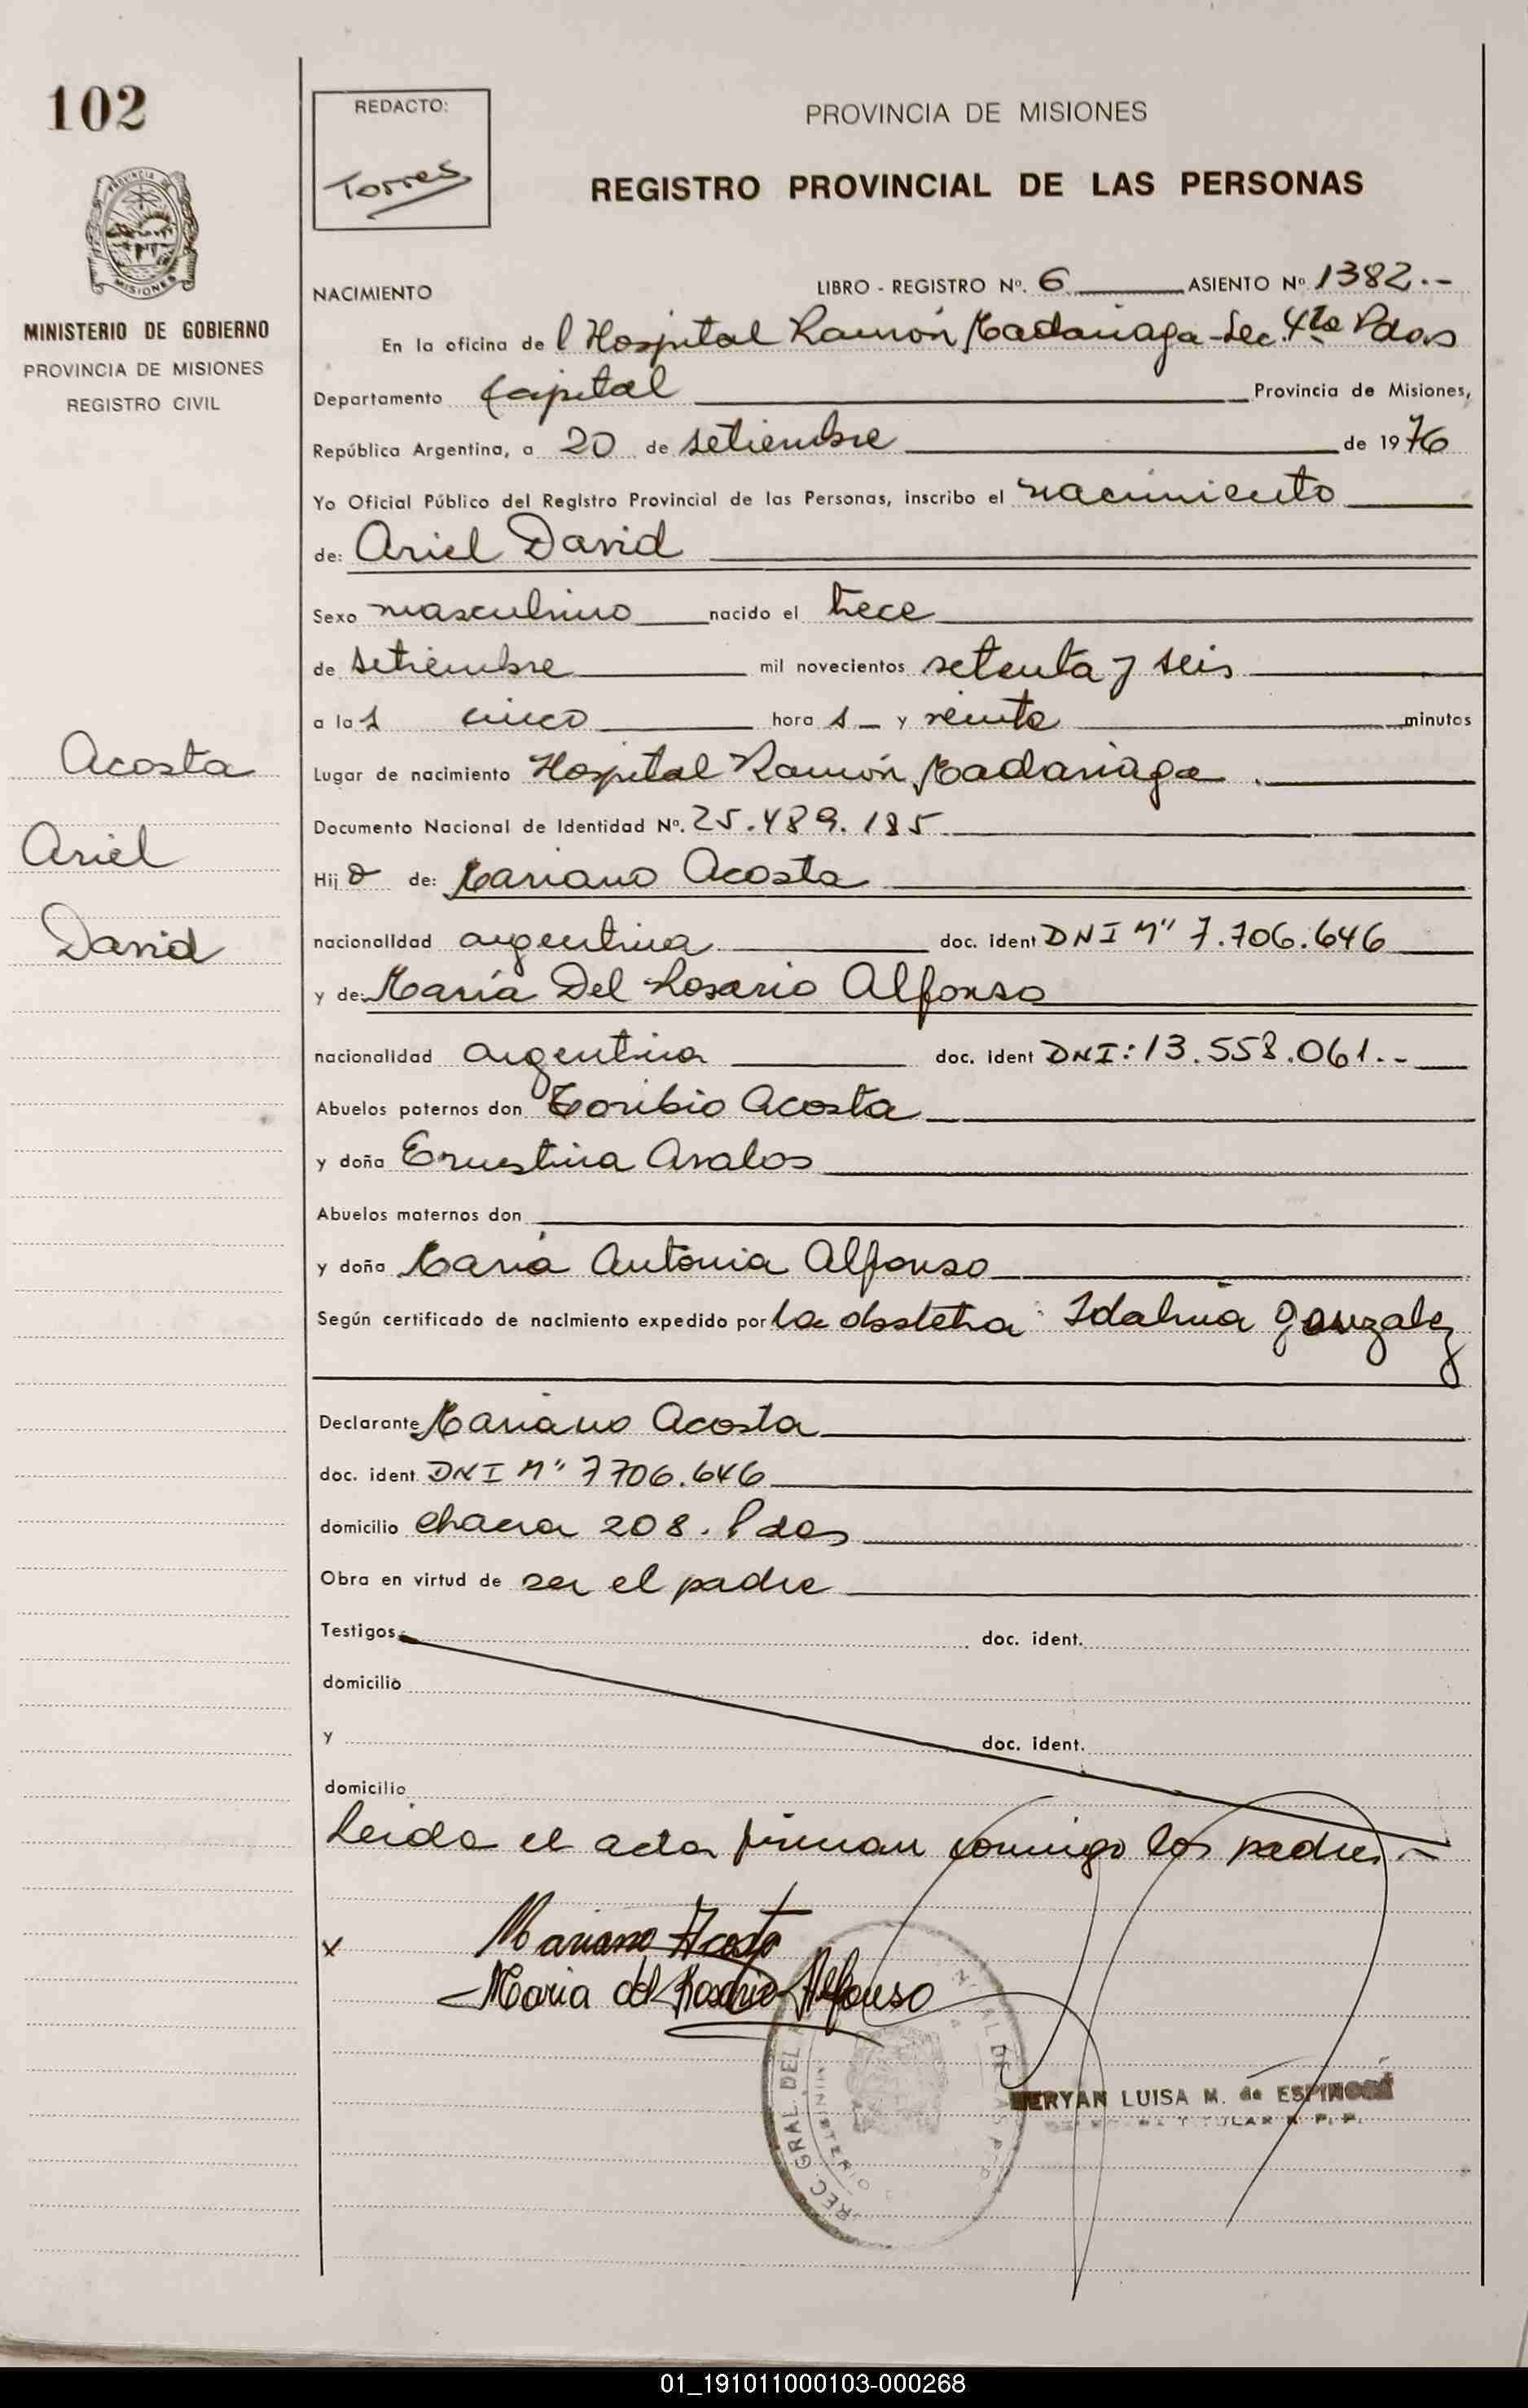 102
REDACTO:
Torres
PROVINCIA DE MISIONES
REGISTRO PROVINCIAL DE LAS PERSONAS
PROVINCIA
MISIONES
MINISTERIO DE GOBIERNO
PROVINCIA DE MISIONES
REGISTRO CIVIL
NACIMIENTO LIBRO - REGISTRO Nº. 6 ASIENTO Nº 1382.--
En la oficina de l Hospital Ramón Madariaga - Sec. 4ta Pdas
Departamento Capital Provincia de Misiones,
República Argentina, a 20 de setiembre de 1976
Yo Oficial Público del Registro Provincial de las Personas, inscribo el nacimiento
de: Ariel David
Sexo masculino nacido el trece
de setiembre mil novecientos setenta y seis
a las cinco hora s y veinte minutos
Acosta
Ariel
David
Lugar de nacimiento Hospital Ramón Madariaga.
Documento Nacional de Identidad Nº. 25.489.185
Hijo de: Mariano Acosta
nacionalidad argentina doc. ident DNI Nº 7.706.646
y de: María Del Rosario Alfonso
nacionalidad argentina doc. ident DNI: 13.558.061.--
Abuelos paternos don Toribio Acosta
y doña Ernestina Avalos
Abuelos maternos don
y doña María Antonia Alfonso
Según certificado de nacimiento expedido por la obstetra Idalina Gonzalez
Declarante Mariano Acosta
doc. ident. DNI Nº 7706.646
domicilio chacra 208. Pdas
Obra en virtud de ser el padre
Testigos doc. ident.
domicilio
y doc. ident.
domicilio
Leida el acta firman conmigo los padres.-
x Mariano Acosta
Maria del Rosario Alfonso
REC. GRAL. DEL
MINISTERIO
MERYAN LUISA M. de ESPINOSA
TITULAR R. P. P.
01_191011000103-000268